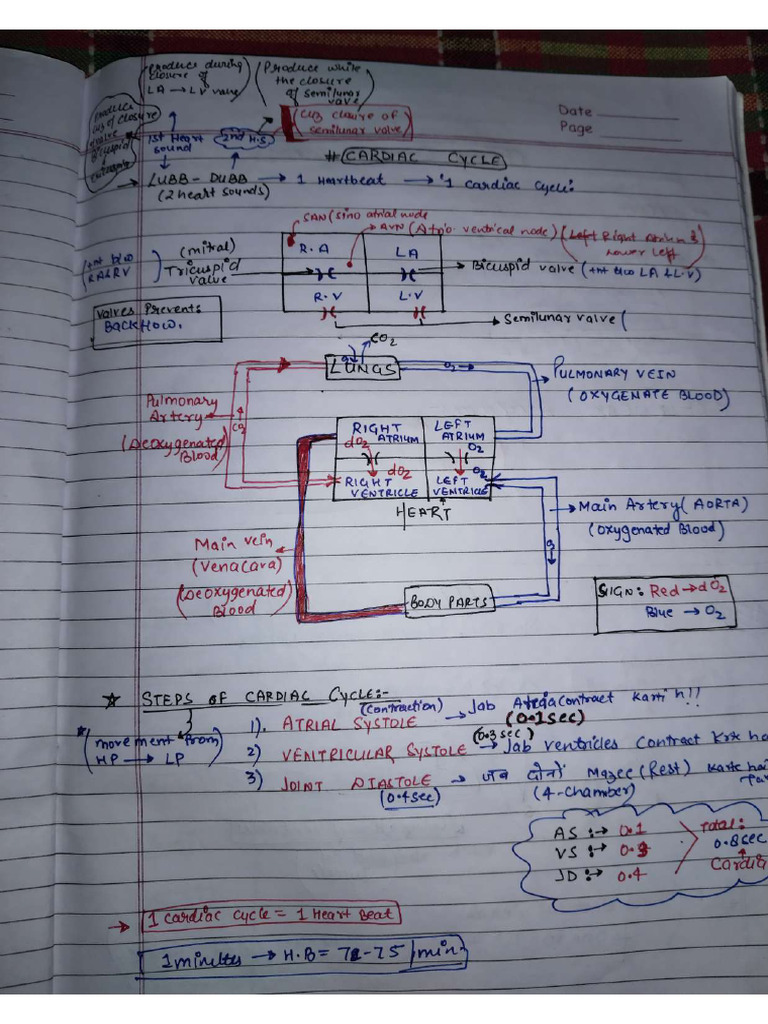 (produce during closure of LA → LV valve)
(Produce while the closure of semilunar valve)
(produce cuz of closure valve Bicuspid & tricuspid)
Date
Page
1st Heart sound
2nd H.S
(cuz closure of semilunar valve)
# CARDIAC CYCLE
→ LUBB - DUBB → 1 Heartbeat → '1 cardiac cycle:
(2 heart sounds)
SAN (sino atrial node
AVN (Atrio ventrical node) (Left Right Atrium & lower left)
(mitral)
Tricuspid valve
R.A
LA
R.V
L.V
Bicuspid valve (+nt b/w LA & L.V)
(+nt b/w RA & RV
Valves Prevents Backflow.
→ Semilunar valve (
CO2
LUNGS
O2
Pulmonary Artery
CO2
(Deoxygenated Blood)
PULMONARY VEIN
(OXYGENATE BLOOD)
RIGHT ATRIUM
dO2
LEFT ATRIUM
O2
dO2
RIGHT VENTRICLE
O2
LEFT VENTRICLE
HEART
Main Artery (AORTA)
(Oxygenated Blood)
Main vein
(Venacava)
(Deoxygenated) Blood
BODY PARTS
SIGN: Red → dO2
Blue → O2
★ STEPS OF CARDIAC CYCLE:-
(movement from HP → LP)
(contraction)
1). ATRIAL SYSTOLE → Jab Atria contract karti h!!
(0.1sec)
(0.3 sec)
2) VENTRICULAR SYSTOLE → Jab ventricles contract krk
3) JOINT DIASTOLE → जब दोनों Mazee (Rest) karte hai
(0.4sec) (4-chamber)
AS :→ 0.1
VS :→ 0.3
JD :→ 0.4
Total:
0.8sec
→ 1 cardiac cycle = 1 Heart Beat
1 minuttes → H.B = 72-75 /min